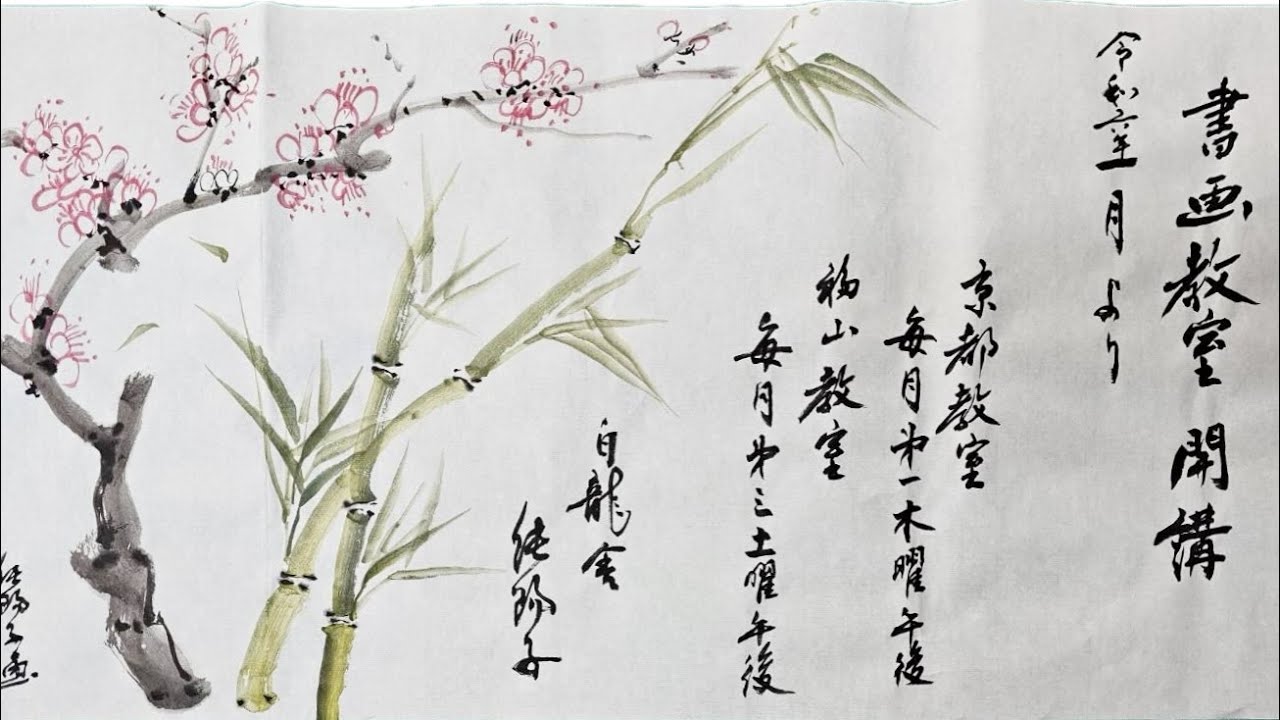 書画教室開講
令和六年一月より
京都教室
毎月第一木曜午後
福山教室
毎月第三土曜午後
白龍舎